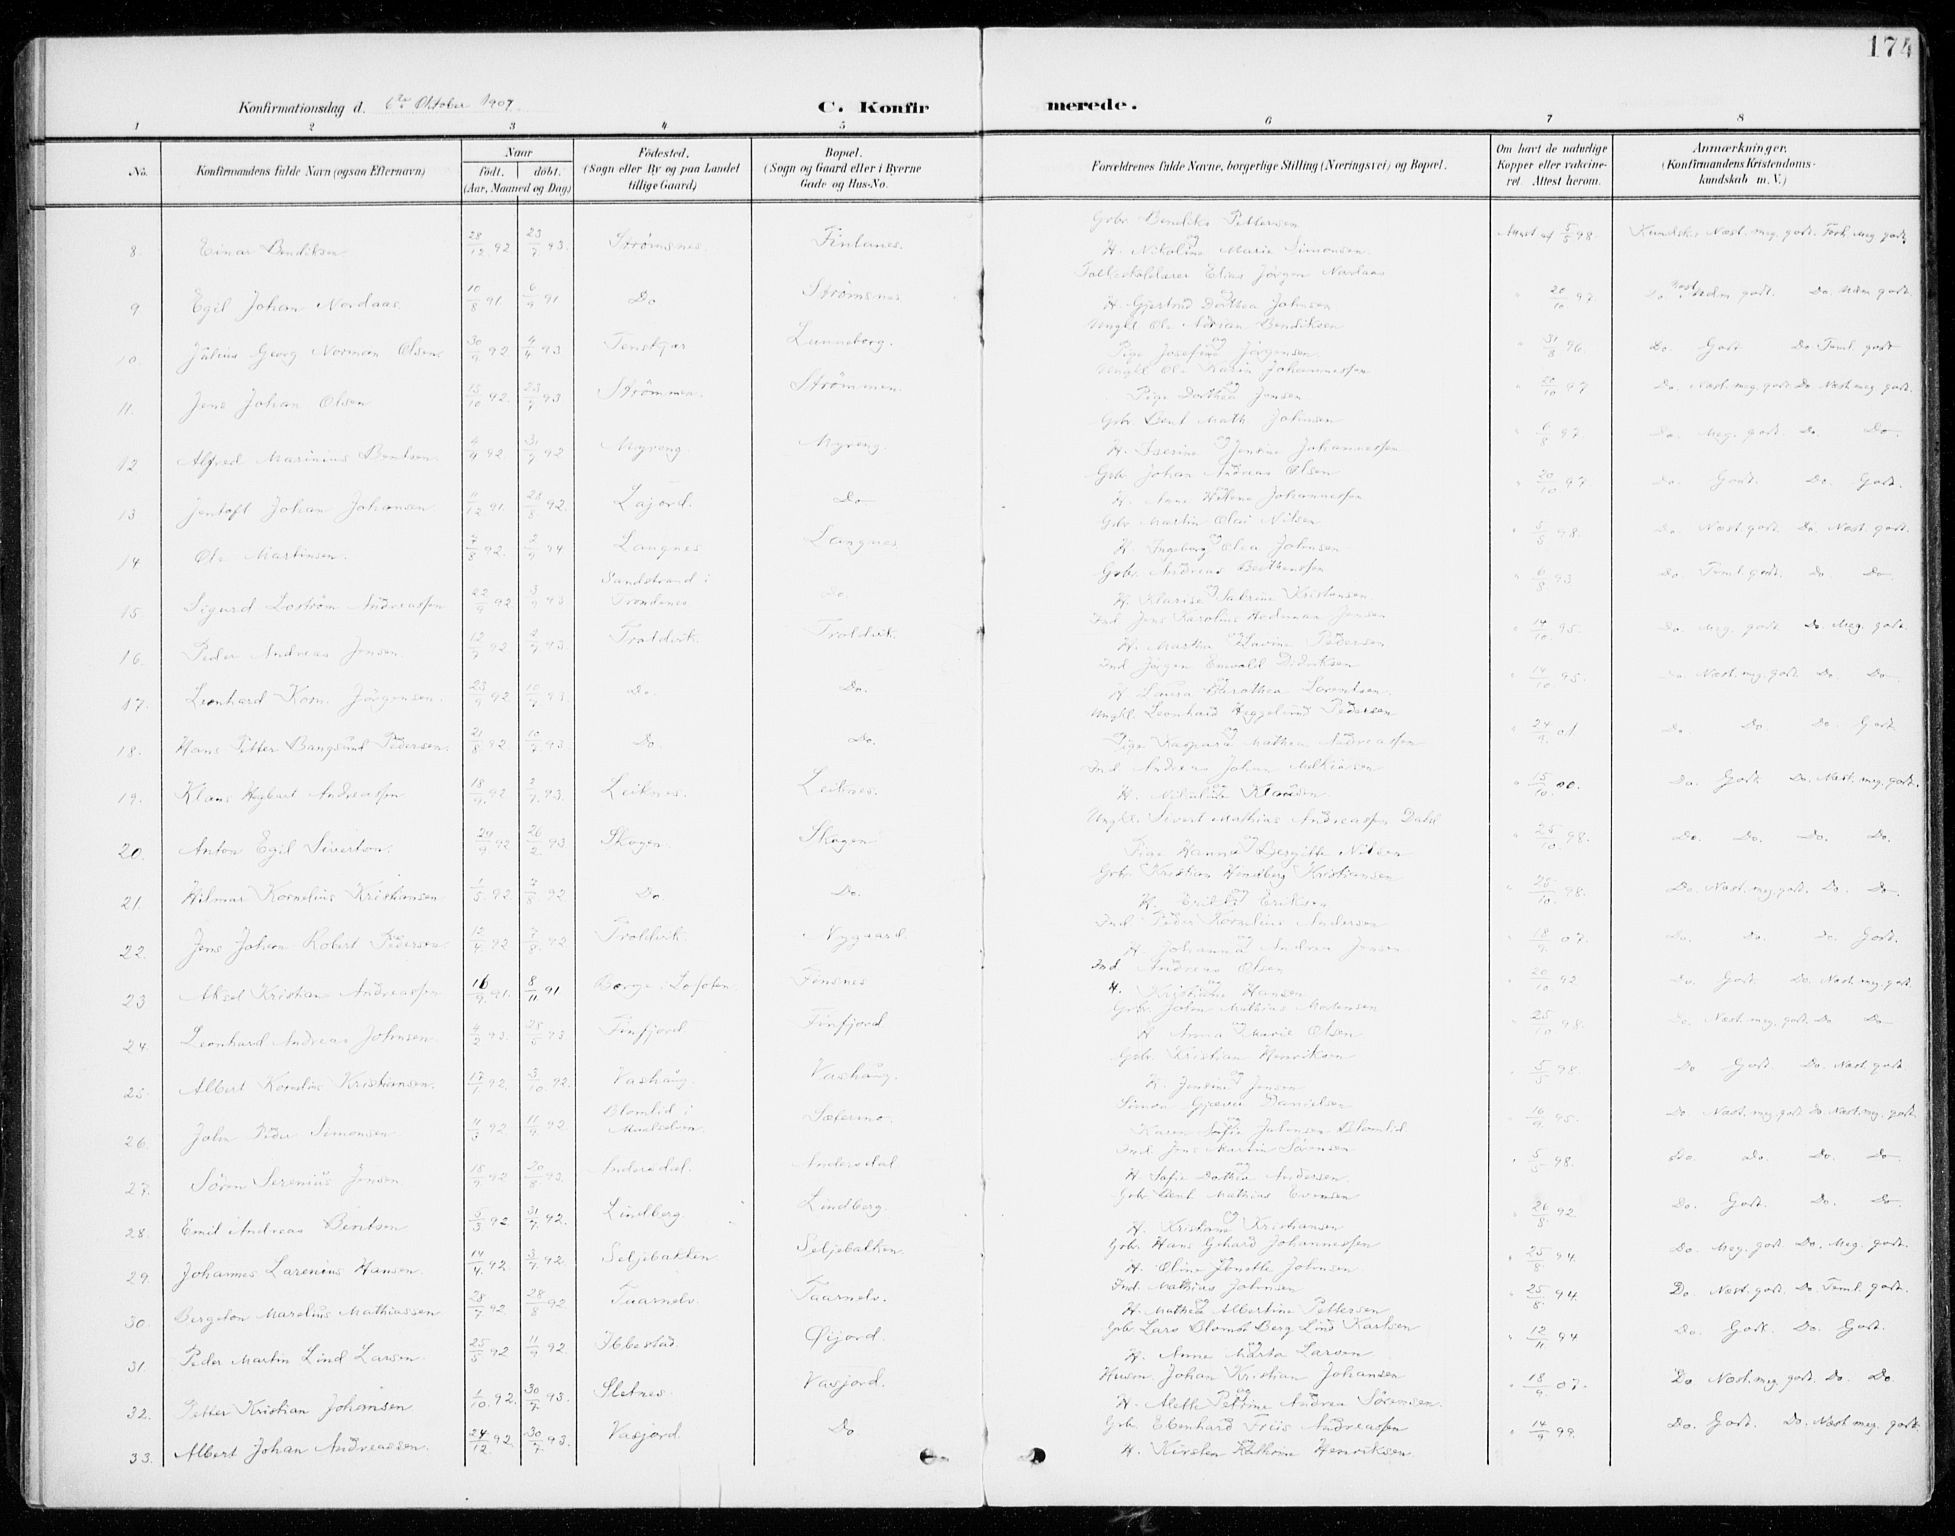 174
Konfirmationsdag d. 6te Oktober 1907.
C. Konfirmerede.
1 2 3 4 5 6 7 8
No.
Konfirmandens fulde Navn (ogsaa Efternavn)
Naar
født. døbt.
(Aar, Maaned og Dag)
Fødested.
(Sogn eller By og paa Landet
tillige Gaard)
Bopæl.
(Sogn og Gaard eller i Byerne
Gade og Hus-No.
Forældrenes fulde Navne, borgerlige Stilling (Næringsvei) og Bopæl.
Om havt de naturlige
Kopper eller vakcine-
ret. Attest herom.
Anmærkninger.
(Konfirmandens Kristendoms-
kundskab m. V.)
8. Einar Bendiksen 28/12 92 23/7 93. Strømsnes. Finlanes. Gbr. Bendiks Pettersen og H. Nikoline Marie Simonsen 5/5 98.
9 Egil Johan Nordaas. 10/8 91 6/9 91 Do Strømsnes Elias Jørgen Nordaas og H. Gjertrud Dorthea Johnsen 20/10 97.
10. Julius Georg Norman Olsen 30/9 92 4/4 93 Lunneborg. Ungkl. Ole Adrian Bendiksen og Pige Josefine Jørgensen. 31/8 96. Do. Godt Do. Teml. godt
11. Jens Johan Olsen 15/10 92. 23/7 93 Strømmen. Strømmen. Pige Dorthea Jensen 20/10 97 Do. Næst. meg. godt Do Næst meg godt.
12 Alfred Marinius Bentsen. 4/4 92. 31/7 92 Myreng. Myreng. Gbr. Bent Math. Johnsen og H. Jensine Johannessen 6/8 97 Do. Meg. godt. Do Do.
13 Jentoft Johan Johansen 11/12 91. 28/8 92. Lajord. Do Gbr. Johan Andreas Olsen H. Anne Helene Johannessen 20/10 97 Do. Godt. Do. Godt.
14. Ole Martinsen. 7/8 92. Langnes Langnes Gbr. Martin Olai Nilsen og H. Ingeborg Olea Johnsen 5/5 98. Do. Næst godt. Do. Næst. godt.
15. Sigurd Andreassen 22/9 92 3/9 93 Sandstrand i Trondenes Do. Gbr. Andreas og H. Klarise Sabrine Kristensen. 6/8 93 Do Teml. godt. Do. Do
16. Peder Andreas Jensen. 12/7 92 Troldvik. Troldvik. Ind. Jens Karolius Jensen H. Martha Pedersen 14/10 95. Do. Meg. godt Do. Meg. godt.
17. Leonhard Korn. Jørgensen. 23/9 92 10/7 93. Do. Do. Ind Jørgen Didriksen og H. Laura Dorothea Lorentsen. 14/10 95. Do Næst. meg. godt Do. Do
18. Hans Petter Bangsund Pedersen. 21/8 92 10/7 93 Do. Do. Ungkl. Leonhard Heggelund Pedersen og Pige Kaspara Mathea Andreassen 24/9 01 Do. Do Do. Godt
19. Klaus Andreassen 18/9 92 2/7 93 Leiknes. Leiknes. Ind. Andreas Johan H. Klausen 15/10 00. Do. Godt. Do. Næst. meg. godt.
20. Anton Egil Sivertsen. 24/9 92 26/2 93 Skogen. Skogen Ungkl. Sivert Mathias Andreassen Dahl og Pige Hanna Bergitte Nilsen 25/10 98. Do. Do. Do. Do.
21. Hilmar Kornelius Kristiansen. 1/5 92 7/8 92. Do Do. Gbr. Kristian Kristiansen og H. Eriksen 25/10 98. Do. Næst. meg. godt. Do. Do
22. Jens Johan Robert Pedersen. 12/4 92 7/8 92 Troldvik. Nygaard. Ind. Peder Kornelius Andersen og H. Johanna Andrea Jensen 18/9 07. Do. Do. Do Godt.
23 Aksel Kristian Andreassen 16/9 91. 8/11 91 Borge i Lofoten Finsnes Ind Andreas Olsen og H. Kristiane Hansen 20/10 92 Do. Godt Do. Næst. meg. godt.
24. Leonhard Andreas Johnsen. 4/2 93. 28/5 93 Finfjord Finfjord Gbr. John Mathias Mortensen og H. Anna Marie Olsen 25/10 98. Do. Næst. meg. godt. Do Do
25. Albert Kornelius Kristiansen. 17/7 92. 3/10 92. Vashaug. Vashaug. Gbr. Kristian Henriksen og H. Jensine Jensen 5/5 98. Do Godt. Do. Næst. godt.
26. John Peder Simonsen 11/3 92 11/9 92 Blomlid i Maalselven Sætermo. Simon Danielsen og Karen Sofie Johnsen Blomlid 16/9 95. Do Næst. meg. godt Do Næst. meg. godt.
27. Søren Serenius Jensen 18/9 92 20/8 93. Andersdal. Andersdal Ind. Jens Martin Sørensen og H. Sofie Dorthea Andersen. 5/5 98. Do. Do. Do. Do
28. Emil Andreas Bentsen 5/3 92 31/7 92. Lindberg. Lindberg. Gbr. Bent Mathias Evensen og H. Kristiane Kristiansen 26/8 92. Do. Godt. Do. Do.
29. Johannes Larenius Hansen. 14/4 92 3/7 92. Seljebakken Seljebakken. Gbr. Hans Gehard Johannessen H. Oline Johnsen 25/8 94. Do. Meg. godt. Do. Meg. godt.
30. Bergeton Marelius Mathiassen 28/7 92 28/8 92 Taarnelv. Taarnelv. Ind. Mathias Johnsen og H. Mathea Albertine Pettersen 25/8 94. Do. Næst. godt. Do Teml. godt.
31 Peder Martin Lind Larsen. 25/5 92 11/9 92 Ibbestad Øijord. Gbr. Lars Berg Lind Karlsen og H. Anne Marta Larsen 12/11 94 Do. Godt. Do. Godt.
32. Petter Kristian Johansen 1/10 92. 30/7 93. Sletnes. Vasjord. Husm. Johan Kristian Johansen og H. Alette Pettrine Andrea Sørensen. 18/9 07. Do Næst. meg. godt. Do. Do
33. Albert Johan Andreassen. 24/12 92 30/7 93. Vasjord. Do Gbr. Ebenhard Friis Andreassen og H. Kirsten Kathrine Henriksen. 14/9 99. Do. Godt. Do. Næst meg. godt